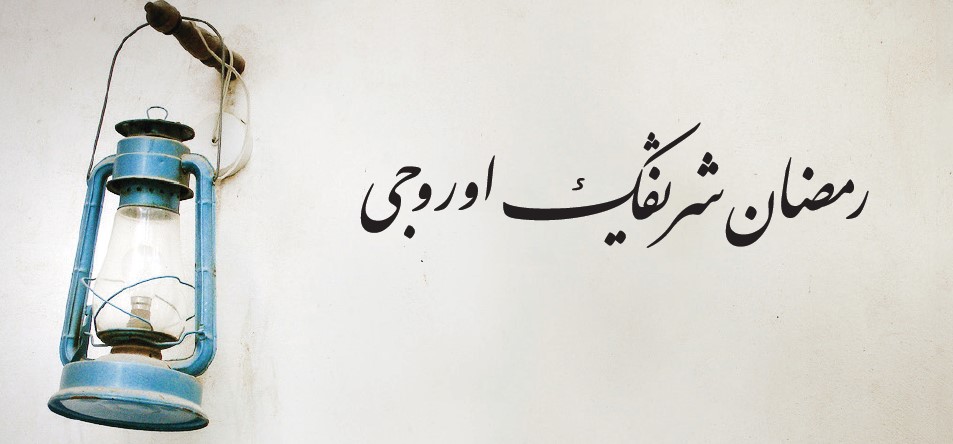 رمضان شريفڭ اوروجى